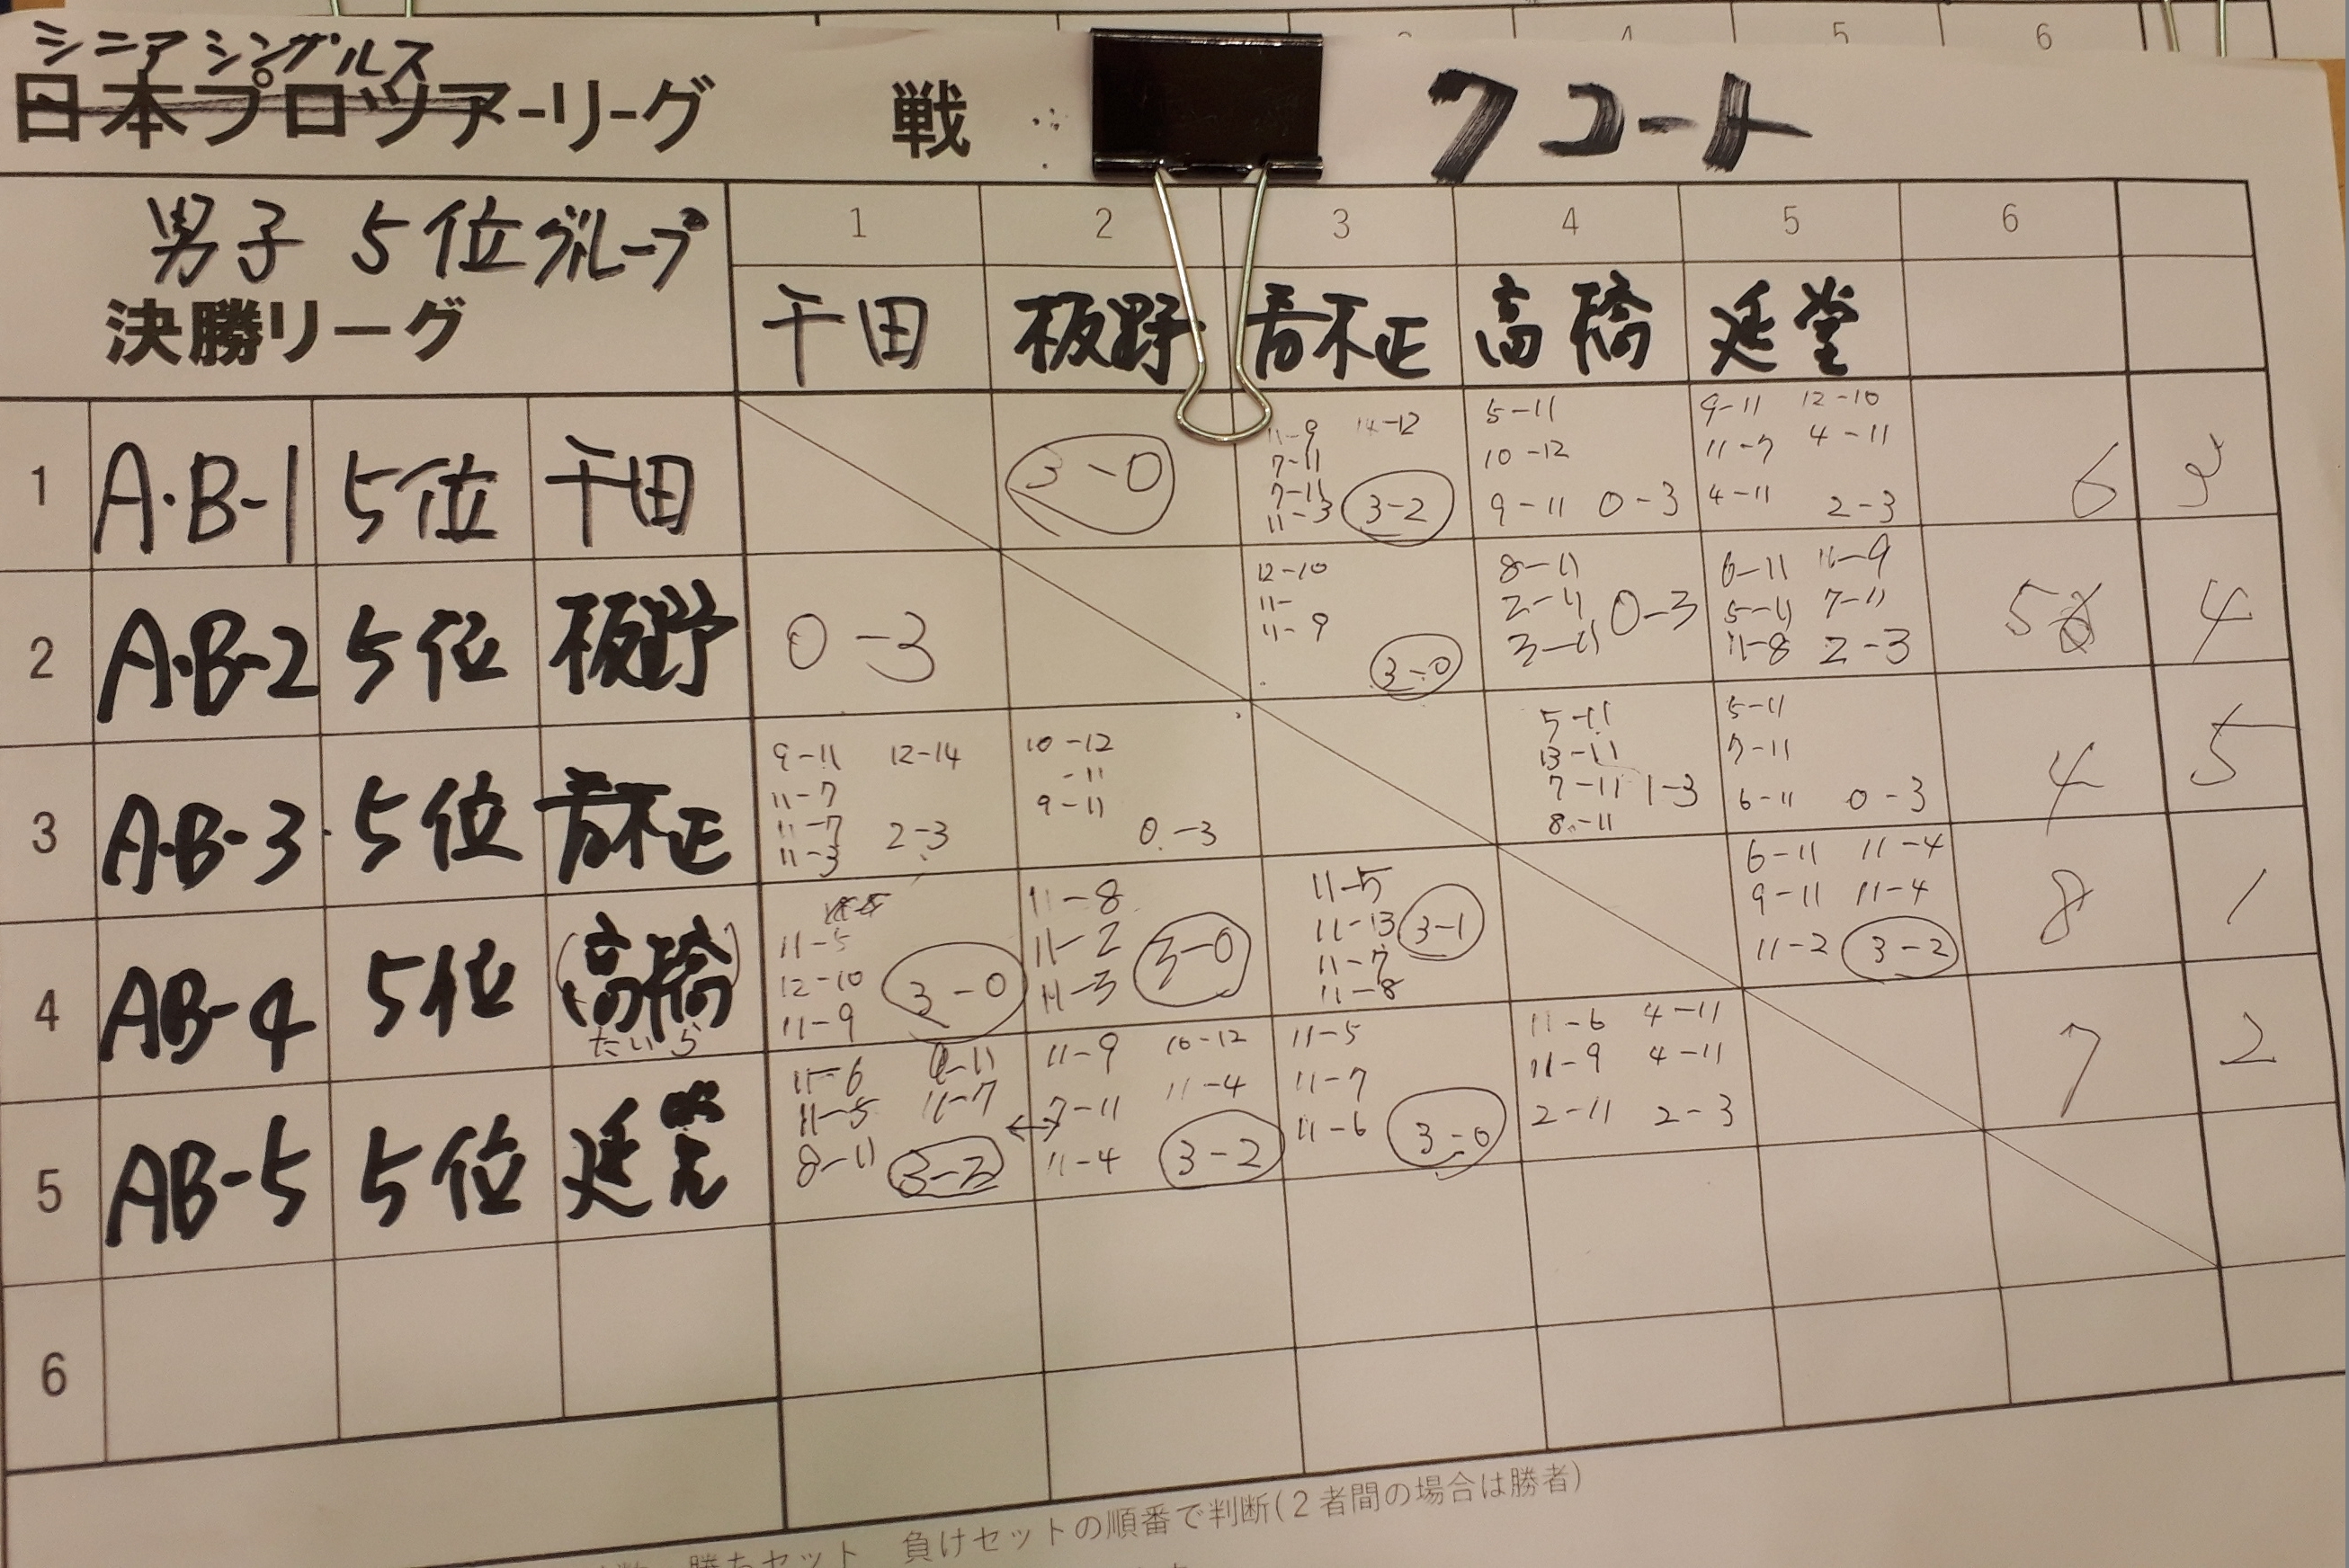 4 5 6
シニアシングルス
日本プロツアーリーグ 戦 7コート
男子 5位グループ
決勝リーグ
1 2 3 4 5 6
千田 板野 斉不正 高橋 延堂
1 A・B-1 5位 千田
3-0
11-9 14-12
7-11
7-11
11-3 3-2
5-11
10-12
9-11 0-3
9-11 12-10
11-7 4-11
4-11 2-3
6 3
2 A・B-2 5位 板野
0-3
12-10
11-
11-9
3-0
8-11
2-11 0-3
3-11
6-11 11-9
5-11 7-11
11-8 2-3
5 4
3 A・B-3 5位
9-11 12-14
11-7
11-7 2-3
11-3
10-12
-11
9-11
0-3
5-11
13-11
7-11 1-3
8-11
5-11
7-11
6-11 0-3
4 5
4 AB-4 5位 (高橋)
たいら
11-5
12-10 3-0
11-9
11-8
11-2 3-0
11-3
11-5
11-13 3-1
11-7
11-8
6-11 11-4
9-11 11-4
11-2 3-2
8 1
5 AB-5 5位
11-6
11-5 11-7
8-11 3-2
11-9 10-12
7-11 11-4
11-4 3-2
11-5
11-7
11-6 3-0
11-6 4-11
11-9 4-11
2-11 2-3
7 2
6
勝ちセット 負けセットの順番で判断(2者間の場合は勝者)